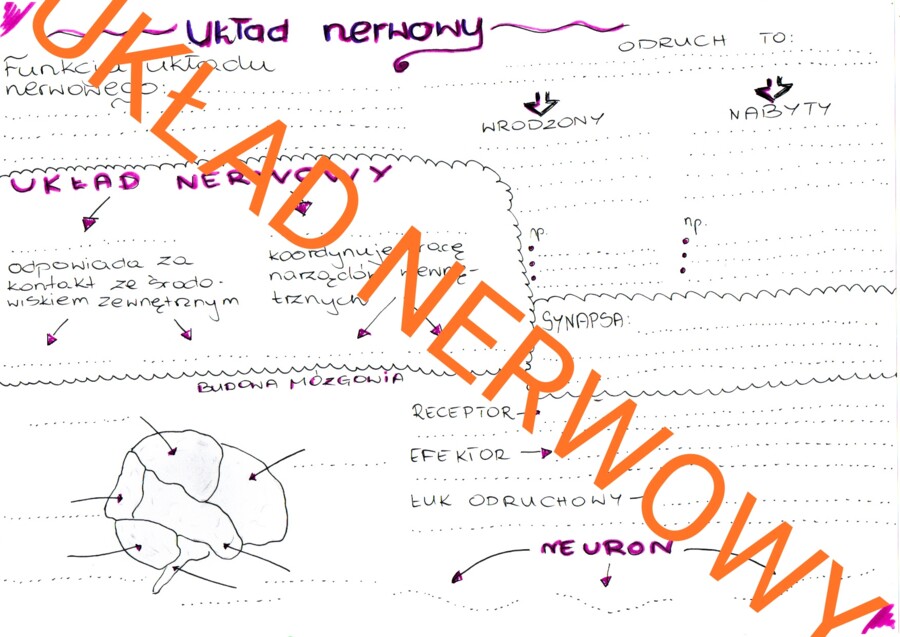 Układ nerwowy
Funkcja układu
nerwowego:
ODRUCH TO:
WRODZONY
NABYTY
np.
np.
UKŁAD NERWOWY
odpowiada za
kontakt ze środo-
wiskiem zewnętrznym
koordynuje pracę
narządów wewnę-
trznych
SYNAPSA:
BUDOWA MÓZGOWIA
RECEPTOR
EFEKTOR
ŁUK ODRUCHOWY
NEURON
UKŁAD NERWOWY